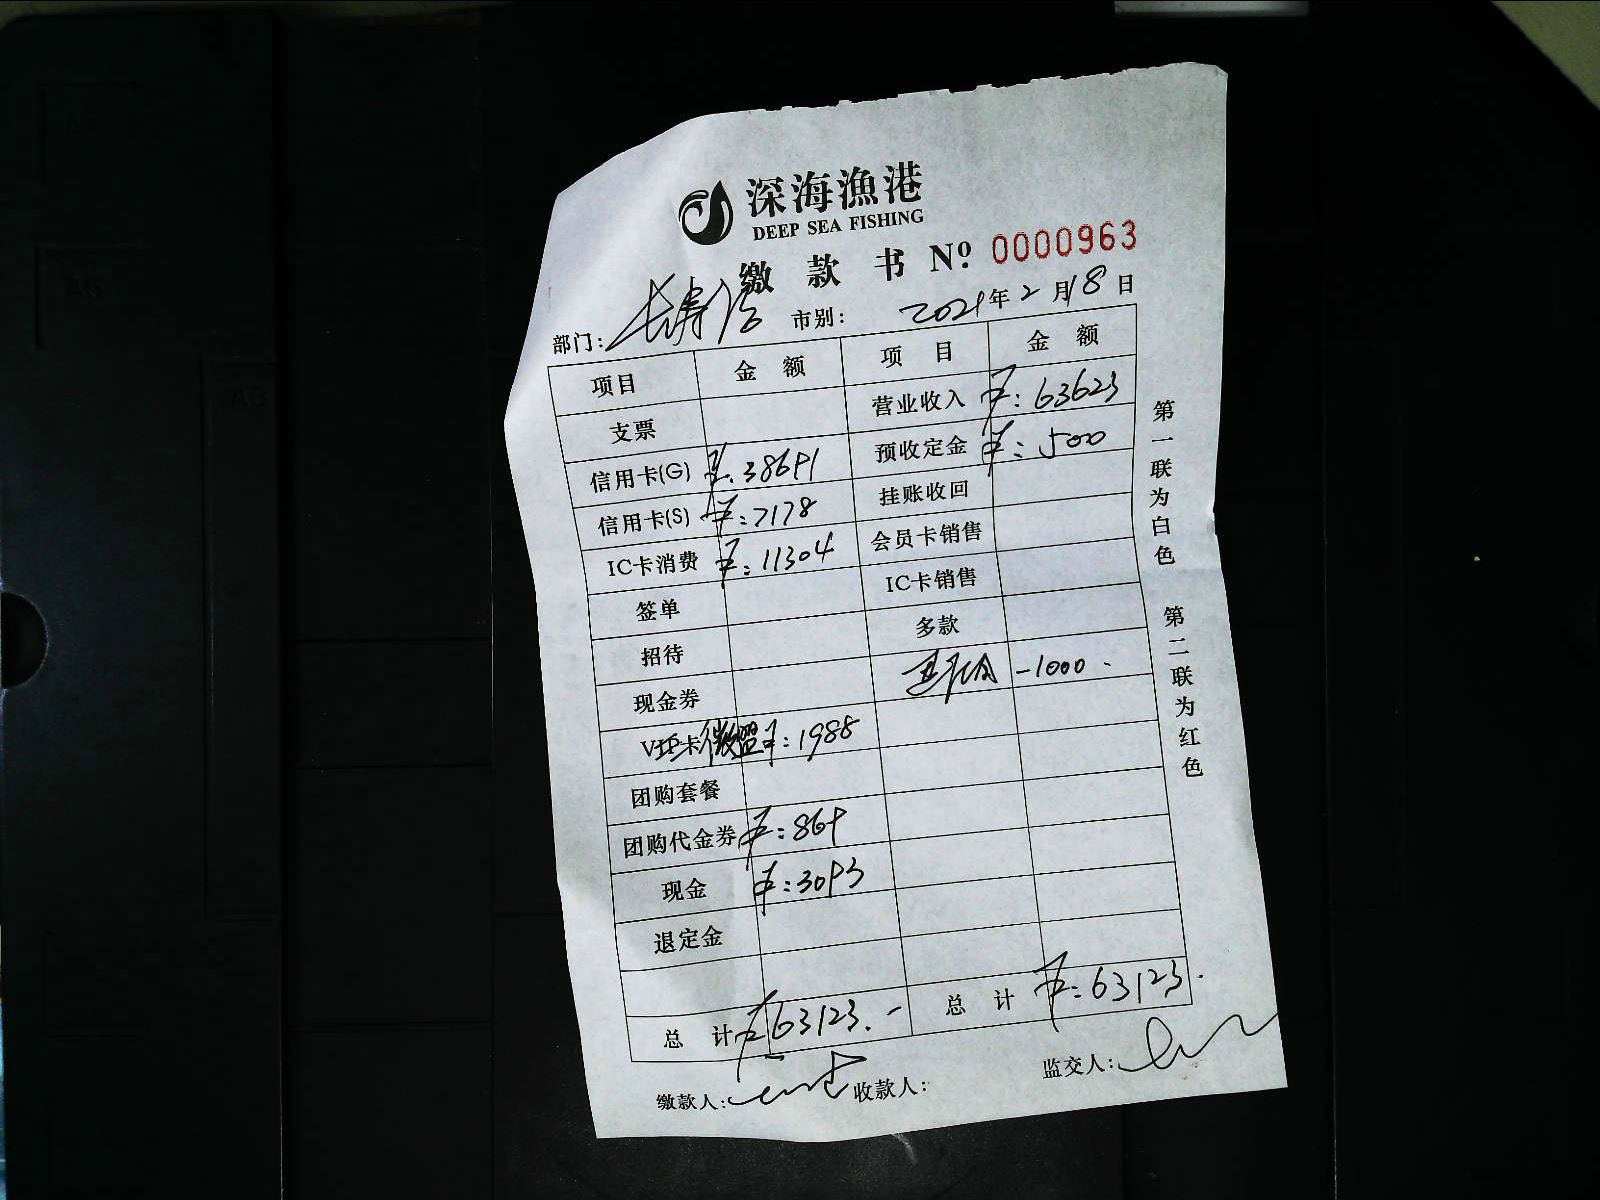 深海漁港
DEEP SEA FISHING
缴款书 Nº 0000963
部门: 长寿店 市别: 2021年2月18日
项目 金额 项目 金额
支票 营业收入 ¥:63623
信用卡(G) ¥:38691 预收定金 ¥:500
信用卡(S) ¥:7178 挂账收回
IC卡消费 ¥:11304 会员卡销售
签单 IC卡销售
招待 多款
现金券 -1000
VIP卡 微盟 ¥:1988
团购套餐
团购代金券 ¥:869
现金 ¥:3093
退定金
总计 ¥63123.- 总计 ¥:63123.
缴款人: 收款人: 监交人:
第一联为白色 第二联为红色